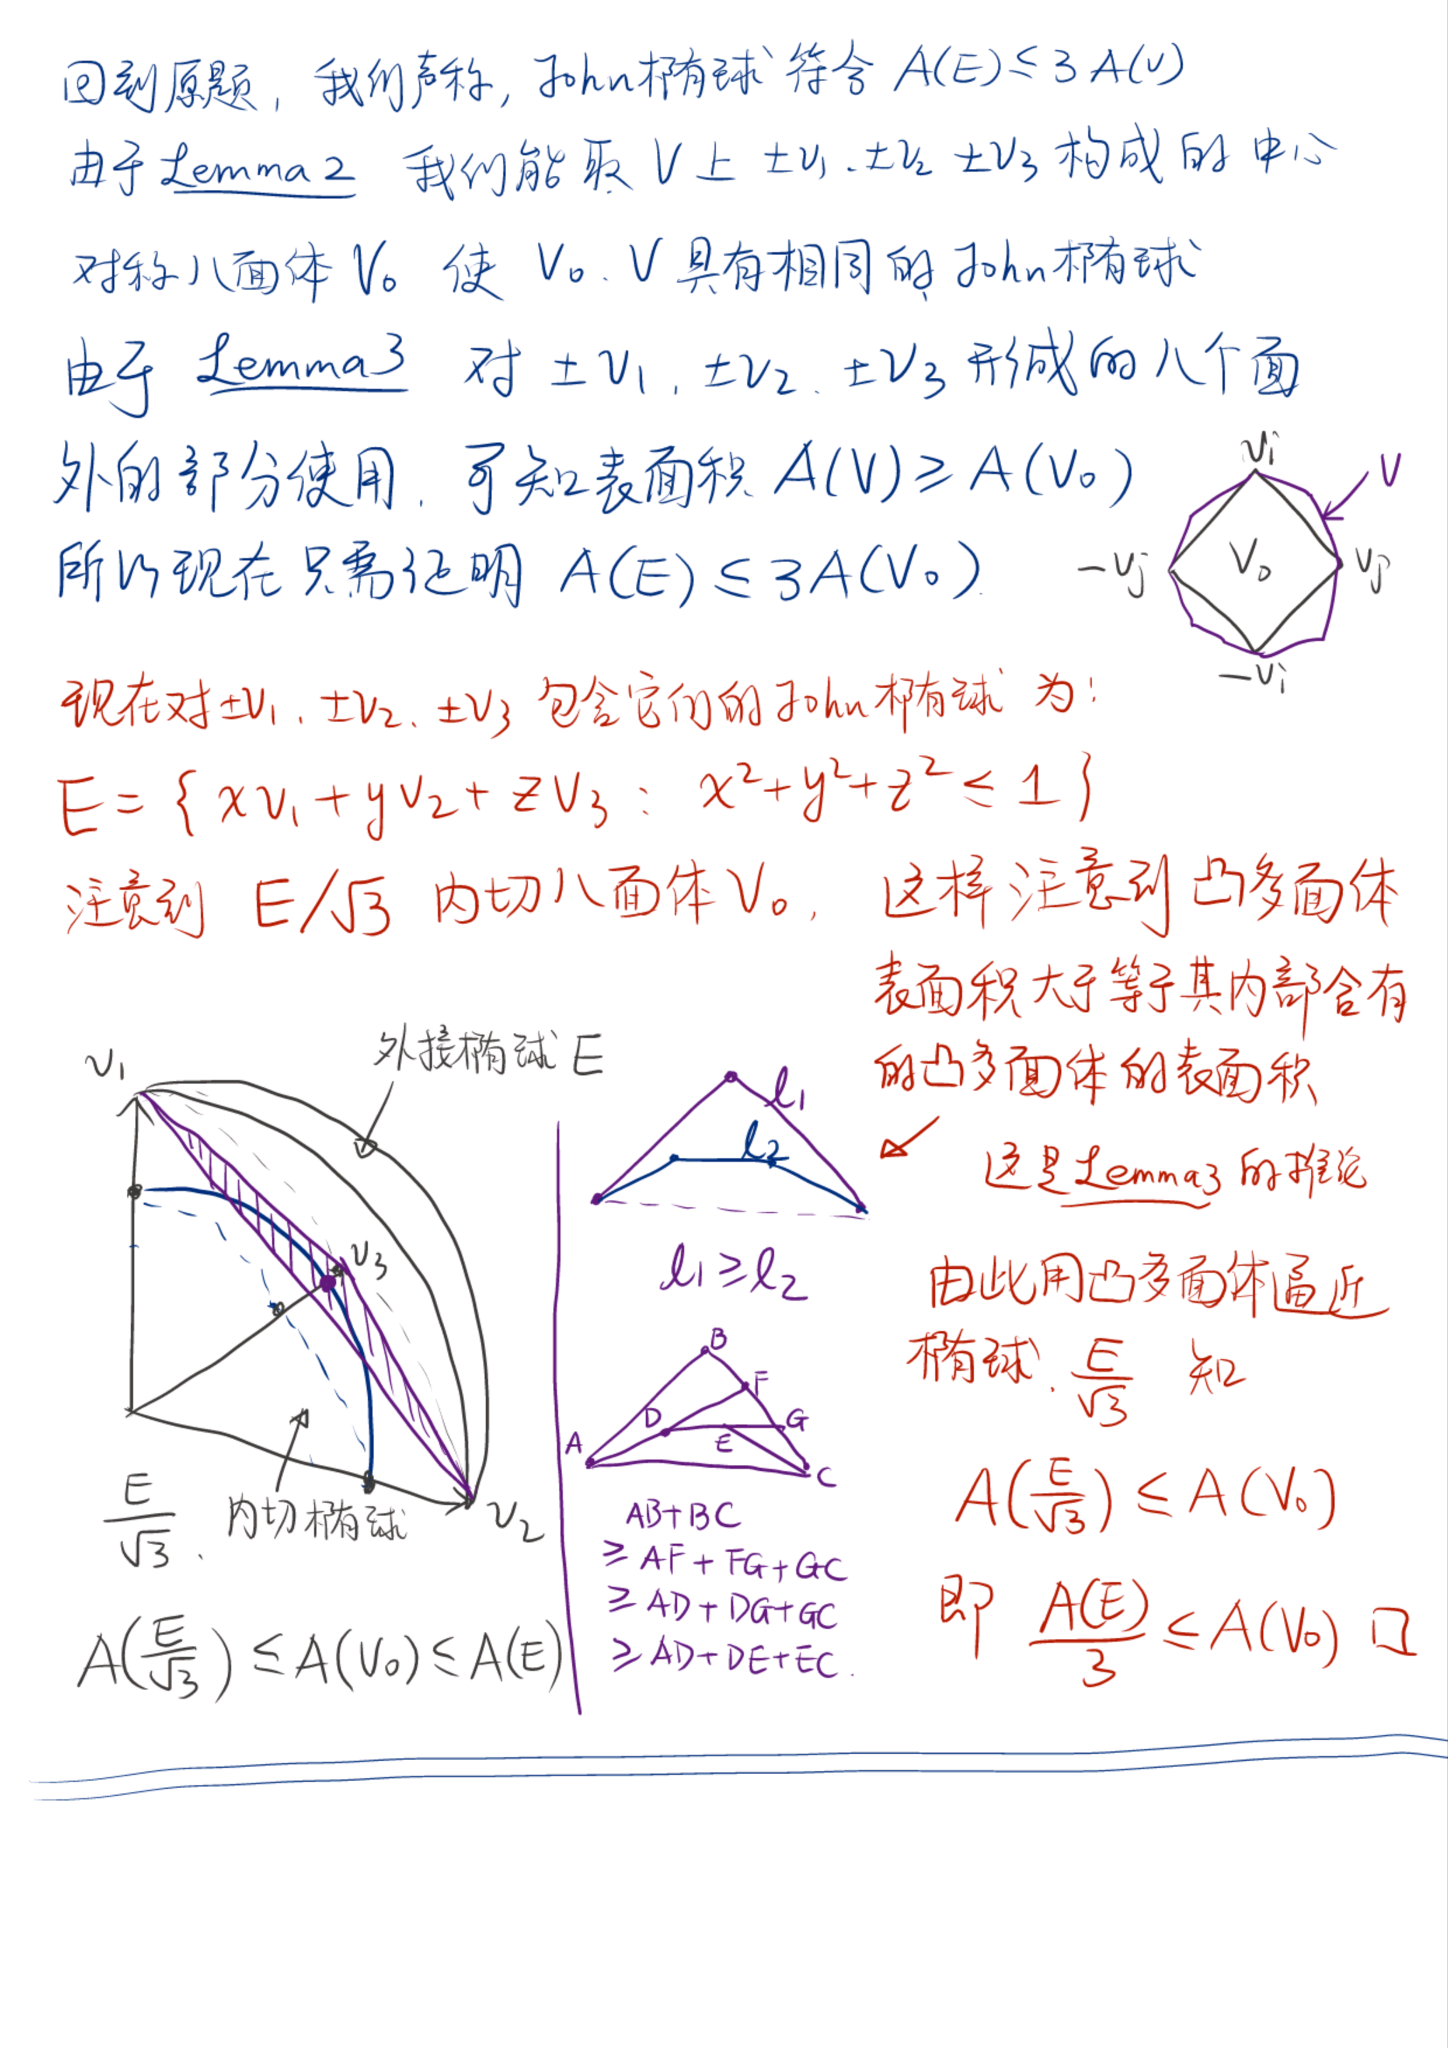 回到原题, 我们声称, John椭球符合 A(E)≤3A(V)
由于Lemma2 我们能取 V上 ±v₁、±v₂ ±v₃ 构成的中心
对称八面体 V₀ 使 V₀、V具有相同的John椭球
由于 Lemma3 对 ±v₁, ±v₂、±v₃ 形成的八个面
外的部分使用, 可知表面积 A(V)≥A(V₀)
所以现在只需证明 A(E)≤3A(V₀)
vi
V
-vj
V₀
vj
-vi
现在对±v₁、±v₂、±v₃ 包含它们的John椭球为:
E={xv₁+yv₂+zv₃ : x²+y²+z²≤1}
注意到 E/√3 内切八面体V₀,
这样注意到凸多面体
表面积大于等于其内部含有
的凸多面体的表面积
这是Lemma3的推论
由此用凸多面体逼近
椭球 E/√3 知
A(E/√3)≤A(V₀)
即 A(E)/3≤A(V₀) □
v₁
外接椭球 E
v₃
v₂
E/√3. 内切椭球
A(E/√3)≤A(V₀)≤A(E)
l₁
l₂
l₁≥l₂
B
F
D
G
A
E
C
AB+BC
≥AF+FG+GC
≥AD+DG+GC
≥AD+DE+EC.